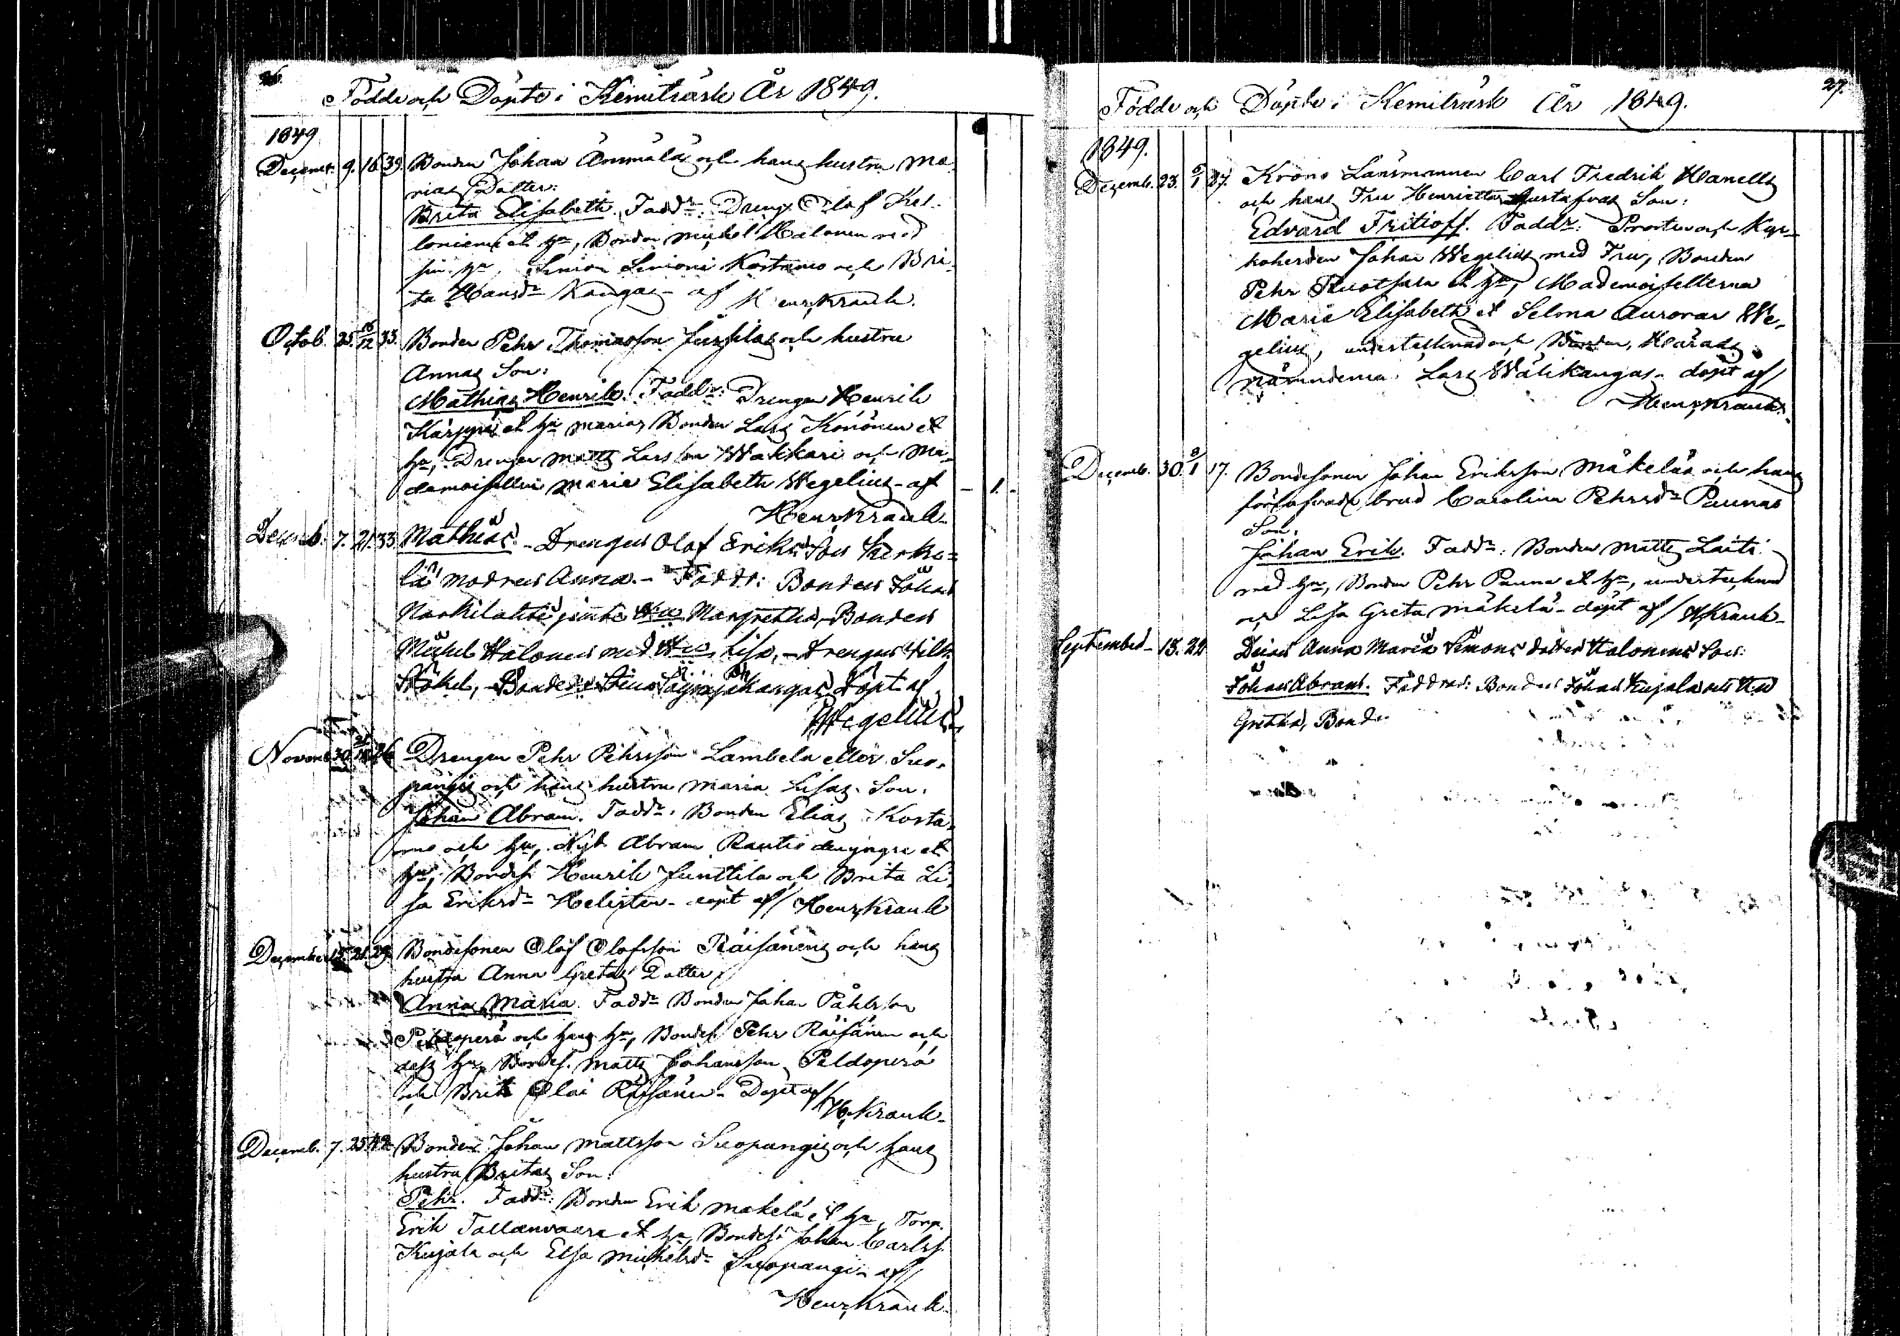 26.
Födde och Döpte i Kemiträsk År 1849.
1849
Decemb. 9. 16 39. Bonden Johan Ämmäläs och hans hustru Ma-
rias Dotter:
Brita Elisabeth. Faddr: Drengen Olof Kel-
loniemi et hu, Bonden Michel Halonen med
sin hu, Simon Simoni Kostamo och Bri-
ta Hansdr Kangas - af Henr. Krank.
Octob. 25. 16/12 33. Bonden Pehr Thomasson Jussilas och hustru
Annas Son:
Mathias Henrik. Faddr: Drengen Henrik
Kärppä et hu Maria, Bonden Lars Könönen et
hu, Drengen Matts Larsson Wakkari och Ma-
demoisellen Maria Elisabeth Wegelius - af
Henr. Krank
Decemb. 7. 21. 33. Mathias. - Drengen Olof Eriks Son Kerke-
lä modren Anna. - Faddr: Bonden Johan
Narkilahti Hu Margretha, - Bonden
Michel Halonen med Hu Lisa, - Drengen
döpt af
Wegelius
Novemb. 30. 26 Drengen Pehr Pehrsson Lambela eller Suo-
pangis och hans hustru Maria Lisas Son:
Johan Abram. Faddr: Bonden Elias Kosta-
mo och hu, Nyb. Abram Rautio den yngre et
hu, Bondes. Henrik Junttila och Brita Li-
sa Eriksdr Helisten - döpt af Henr. Krank
December 15. 21. 29. Bondesonen Olof Olofsson Räisänens och hans
hustru Anna Gretas Dotter
Anna Maria. Faddr Bonden Johan Påhlsson
och hans hu, Bondes. Pehr Räisänen och
dess hu, Bondes. Matts Johansson Peldoperä
och Brita Olai Räisänen - Döpt af
H. Krank.
Decemb. 7. 25. 42. Bonden Johan Mattsson Suopangis och hans
hustru Britas Son:
Pehr. Faddr: Bonden Erik Mäkelä et hu, Torp.
Erik Tallavaara et hu, Bondes. Johan Carlss.
Kujala och Elsa Michelsdr Suopangi - af
Henr. Krank.
1.
27.
Födde och Döpte i Kemiträsk År 1849.
1849.
Decemb. 23. 27. Krono Länsmannen Carl Fredrik Wanells
och hans Fru Henrietta Gustafvas Son:
Edvard Fritioff. Faddr: Prosten och Kyr-
koherden Johan Wegelius med Fru, Bonden
Pehr et hu, Mademoisellerna
Maria Elisabeth et Selma Aurorar We-
gelius, undertecknad och Bonden, Härads
nämndeman Lars Wälikangas - döpt af
Henr. Krank.
Decemb. 30. 17. Bondesonen Johan Eriksson Mäkeläs och hans
förlofvade brud Carolina Pehrsdr Paunas
Son:
Johan Erik. Faddr: Bonden Matts Laiti
med hu, Bonden Pehr Pauna et hu, undertecknad
och Lisa Greta Mäkelä - döpt af H. Krank
September 13. 22 Anna Maria Simons dotter Halonens Son:
Johan Abram. Faddrar: Bonden Johan Kujala och Hu
Gretha, Bonde